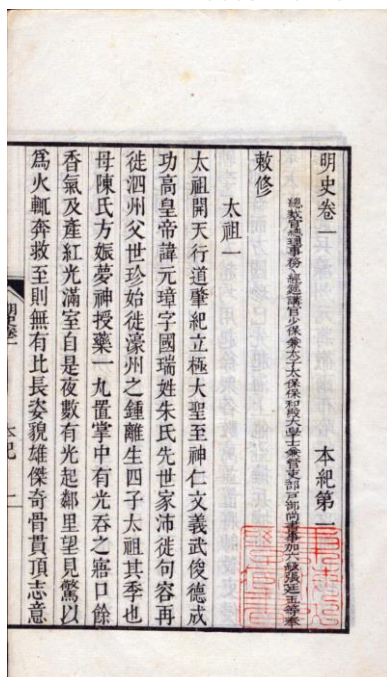 明史卷一 本紀第一
總裁官總理事務經筵講官少保兼太子太保保和殿大學士兼管吏部戶部尚書事加六級張廷玉等奉
敕修
太祖一
太祖開天行道肇紀立極大聖至神仁文義武俊德成
功高皇帝諱元璋字國瑞姓朱氏先世家沛徙句容再
徙泗州父世珍始徙濠州之鍾離生四子太祖其季也
母陳氏方娠夢神授藥一丸置掌中有光吞之寤口餘
香氣及產紅光滿室自是夜數有光起鄰里望見驚以
為火輒奔救至則無有比長姿貌雄傑奇骨貫頂志意
本紀 一